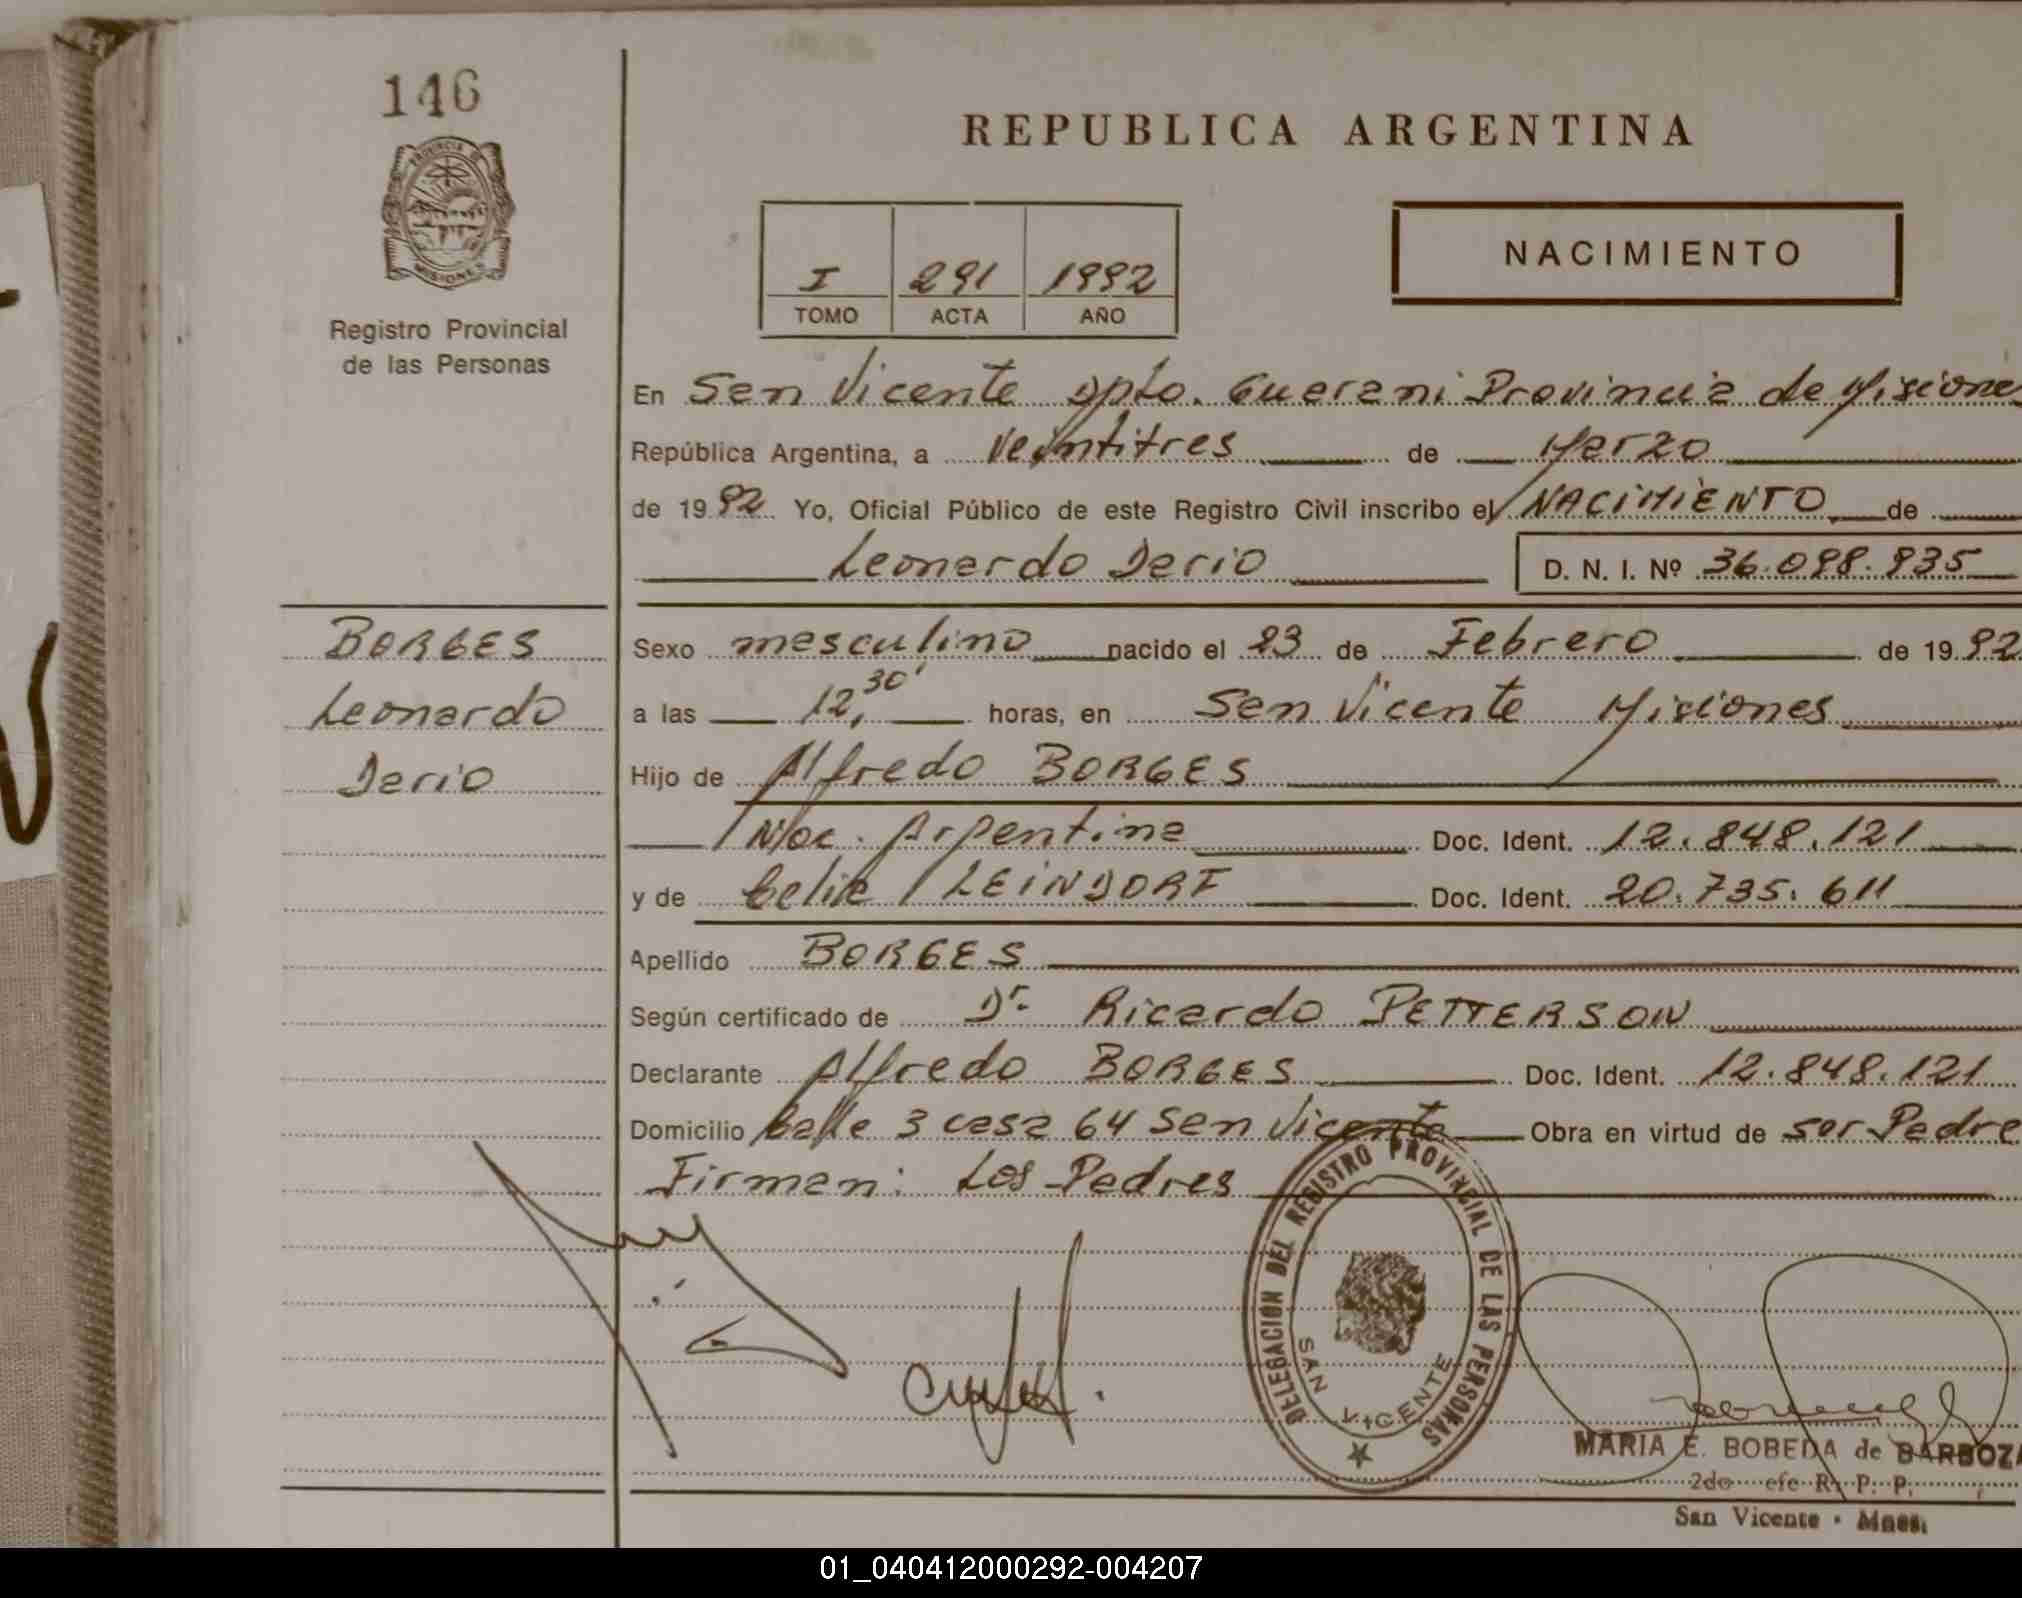 146
REPUBLICA ARGENTINA
PROVINCIA DE
MISIONES
Registro Provincial
de las Personas
I 291 1992
TOMO ACTA AÑO
NACIMIENTO
En San Vicente Dpto. Guarani Provincia de Misiones
República Argentina, a Veintitres de Marzo
de 1992 Yo, Oficial Público de este Registro Civil inscribo el NACIMIENTO de
Leonardo Dario D. N. I. Nº 36.098.935
BORGES
Leonardo
Dario
Sexo masculino nacido el 23 de Febrero de 1992
a las 12,30' horas, en San Vicente Misiones
Hijo de Alfredo BORGES
Nac. Argentina Doc. Ident. 12.848.121
y de Celia LEINDORF Doc. Ident. 20.735.611
Apellido BORGES
Según certificado de Dr. Ricardo PETTERSON
Declarante Alfredo BORGES Doc. Ident. 12.848.121
Domicilio Calle 3 casa 64 San Vicente Obra en virtud de ser Padre
Firman: Los Padres
DELEGACION DEL REGISTRO PROVINCIAL DE LAS PERSONAS
SAN VICENTE
MARIA E. BOBEDA de BARBOZA
2do efe R. P. P.
San Vicente - Mnes.
01_040412000292-004207